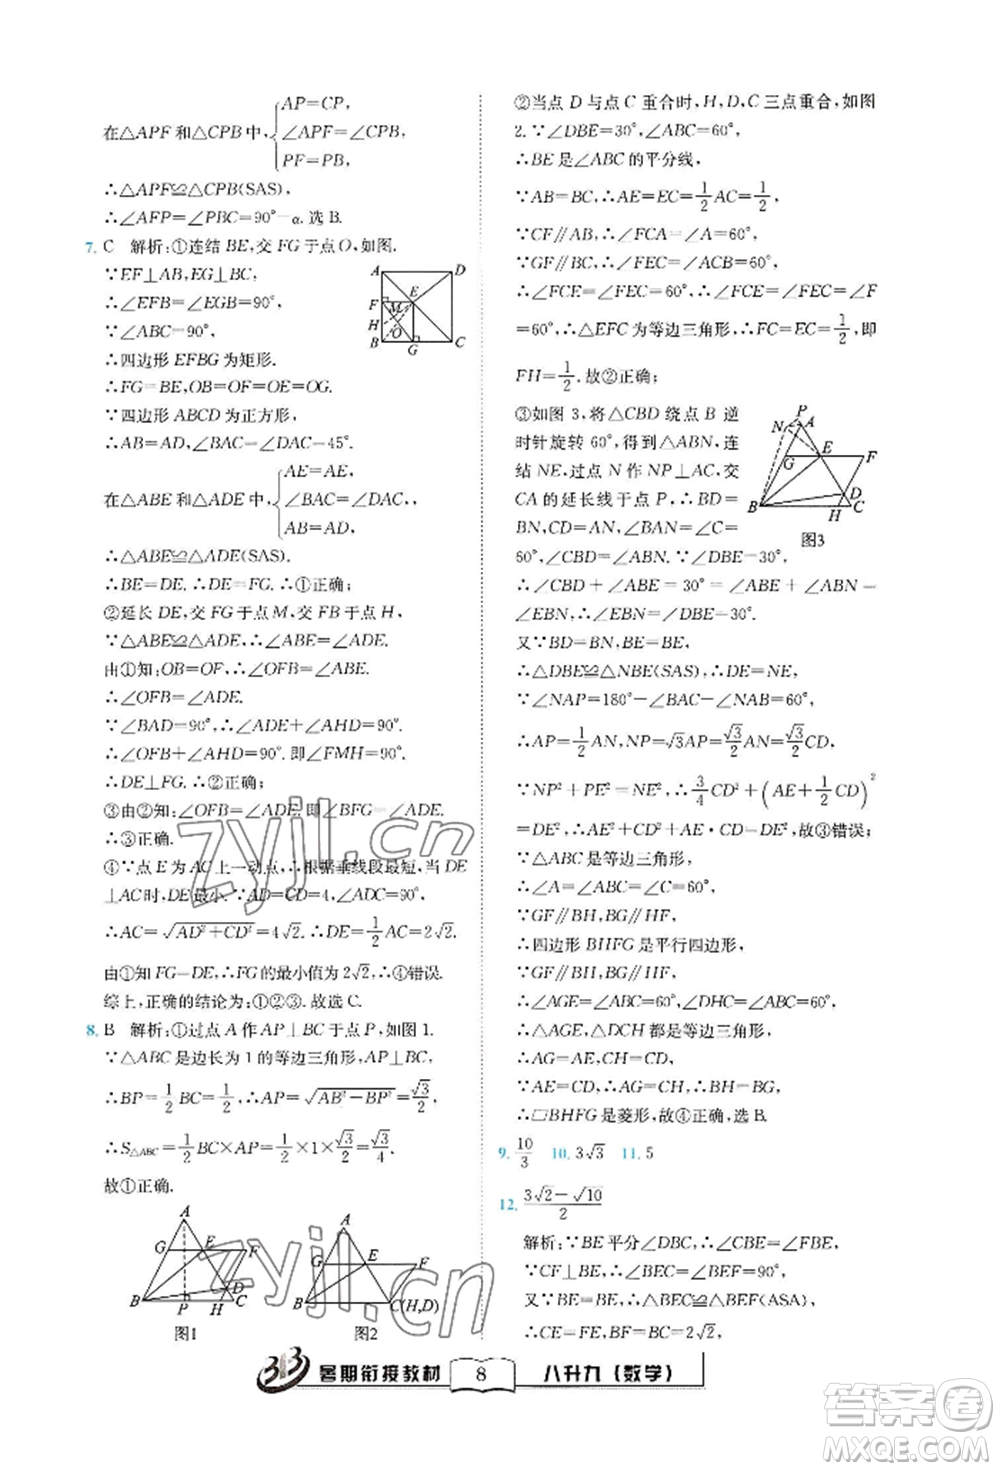 在△APF和△CPB中,{AP=CP,
∠APF=∠CPB,
PF=PB,
∴△APF≌△CPB(SAS),
∴∠AFP=∠PBC=90°-α. 选B.
7. C 解析:①连结BE,交FG于点O,如图.
∵EF⊥AB,EG⊥BC,
∴∠EFB=∠EGB=90°,
∵∠ABC=90°,
∴四边形EFBG为矩形.
∴FG=BE,OB=OF=OE=OG.
∵四边形ABCD为正方形,
∴AB=AD,∠BAC=∠DAC=45°.
在△ABE和△ADE中,{AE=AE,
∠BAC=∠DAC,
AB=AD,
∴△ABE≌△ADE(SAS).
∴BE=DE. ∴DE=FG. ∴①正确;
②延长DE,交FG于点M,交FB于点H,
∵△ABE≌△ADE,∴∠ABE=∠ADE.
由①知:OB=OF,∴∠OFB=∠ABE.
∴∠OFB=∠ADE.
∵∠BAD=90°,∴∠ADE+∠AHD=90°.
∴∠OFB+∠AHD=90°. 即∠FMH=90°.
∴DE⊥FG. ∴②正确;
③由②知:∠OFB=∠ADE. 即∠BFG=∠ADE.
∴③正确.
④∵点E为AC上一动点,∴根据垂线段最短,当DE
⊥AC时,DE最小. ∵AD=CD=4,∠ADC=90°,
∴AC=√(AD²+CD²)=4√2. ∴DE=1/2 AC=2√2.
由①知FG=DE,∴FG的最小值为2√2,∴④错误.
综上,正确的结论为:①②③. 故选C.
8. B 解析:①过点A作AP⊥BC于点P,如图1.
∵△ABC是边长为1的等边三角形,AP⊥BC,
∴BP=1/2 BC=1/2,∴AP=√(AB²-BP²)=√3/2,
∴S△ABC=1/2 BC×AP=1/2×1×√3/2=√3/4,
故①正确.
A
G E F
D
B P H C
图1
A
G E F
B C(H,D)
图2
②当点D与点C重合时,H,D,C三点重合,如图
2. ∵∠DBE=30°,∠ABC=60°,
∴BE是∠ABC的平分线,
∵AB=BC,∴AE=EC=1/2 AC=1/2,
∵CF∥AB,∴∠FCA=∠A=60°,
∵GF∥BC,∴∠FEC=∠ACB=60°,
∴∠FCE=∠FEC=60°,∴∠FCE=∠FEC=∠F
=60°,∴△EFC为等边三角形,∴FC=EC=1/2,即
FH=1/2. 故②正确;
③如图3,将△CBD绕点B逆
时针旋转60°,得到△ABN,连
结NE,过点N作NP⊥AC,交
CA的延长线于点P,∴BD=
BN,CD=AN,∠BAN=∠C=
60°,∠CBD=∠ABN. ∵∠DBE=30°,
∴∠CBD+∠ABE=30°=∠ABE+∠ABN=
∠EBN,∴∠EBN=∠DBE=30°.
又∵BD=BN,BE=BE,
∴△DBE≌△NBE(SAS),∴DE=NE,
∵∠NAP=180°-∠BAC-∠NAB=60°,
∴AP=1/2 AN,NP=√3AP=√3/2 AN=√3/2 CD,
∵NP²+PE²=NE²,∴3/4 CD²+(AE+1/2 CD)²
=DE²,∴AE²+CD²+AE·CD=DE²,故③错误;
∵△ABC是等边三角形,
∴∠A=∠ABC=∠C=60°,
∵GF∥BH,BG∥HF,
∴四边形BHFG是平行四边形,
∵GF∥BH,BG∥HF,
∴∠AGE=∠ABC=60°,∠DHC=∠ABC=60°,
∴△AGE,△DCH都是等边三角形,
∴AG=AE,CH=CD,
∵AE=CD,∴AG=CH,∴BH=BG,
∴▱BHFG是菱形,故④正确,选B.
P
N A
G E F
D
B H C
图3
9. 10/3 10. 3√3 11. 5
12. (3√2-√10)/2
解析:∵BE平分∠DBC,∴∠CBE=∠FBE,
∵CF⊥BE,∴∠BEC=∠BEF=90°,
又∵BE=BE,∴△BEC≌△BEF(ASA),
∴CE=FE,BF=BC=2√2,
暑期衔接教材 8 八升九(数学)
zyjl.cn
zyjl.cn
答案圈
MXQE.COM